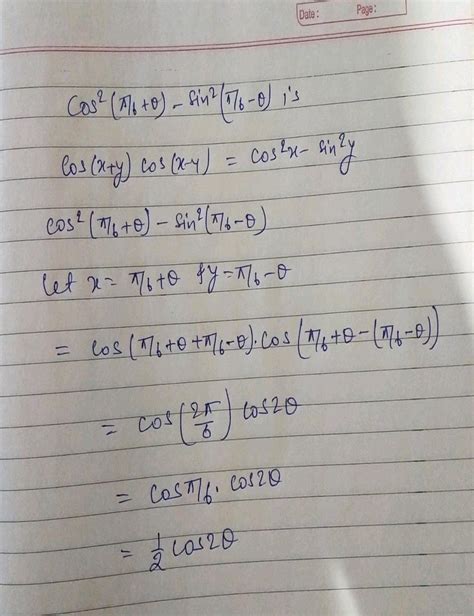 Date: Page:
Cos²(π/6+θ) – Sin²(π/6-θ) is
Cos(x+y) cos(x-y) = cos²x – sin²y
cos²(π/6+θ) – Sin²(π/6-θ)
let x = π/6+θ & y = π/6-θ
= cos(π/6+θ+π/6-θ).cos(π/6+θ-(π/6-θ))
= cos(2π/6) cos2θ
= cosπ/6. cos2θ
= 1/2 cos2θ